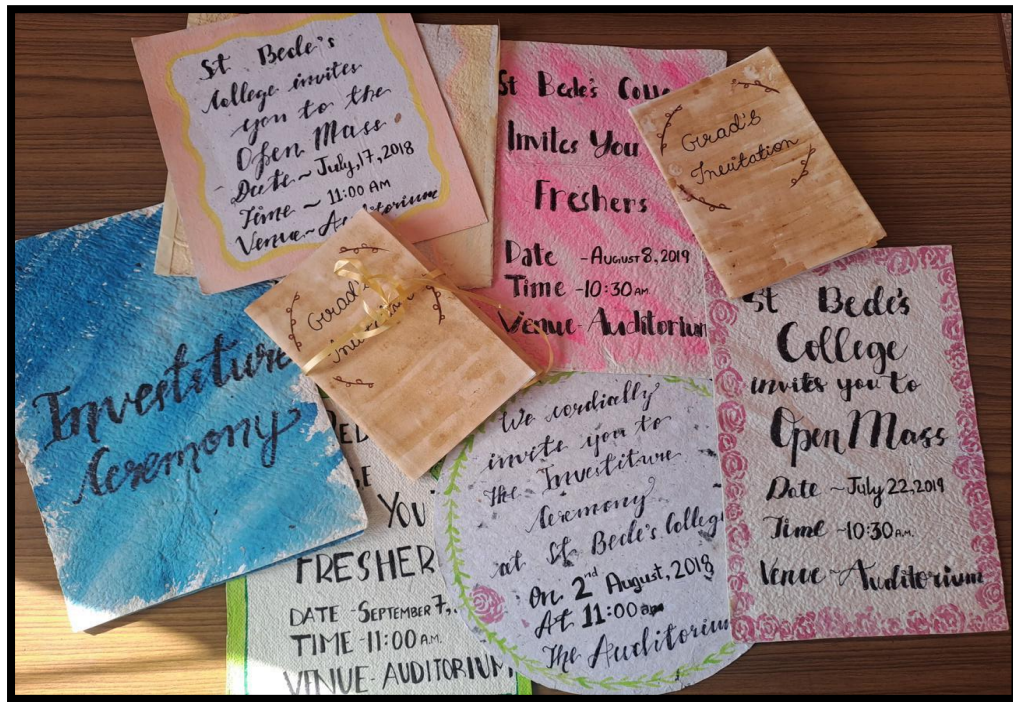 St Bede's
College invites
you to the
Open Mass
Date ~ July,17,2018
Time ~ 11:00 AM
Venue ~ Auditorium
St Bede's
Invites You
Freshers
Date - August 8, 2019
Time - 10:30 AM
Venue - Auditorium
Grad's
Invitation
Investiture
Ceremony
Grad's
St Bede's
College
invites you to
Open Mass
Date ~ July 22, 2019
Time ~ 10:30 A.M.
Venue ~ Auditorium
We cordially
invite you to
the Investiture
Ceremony
at St Bede's College
On 2nd August, 2018
At 11:00 am
The Auditorium
You
FRESHER
DATE - SEPTEMBER 7,
TIME - 11:00 A.M.
VENUE - AUDITORIUM